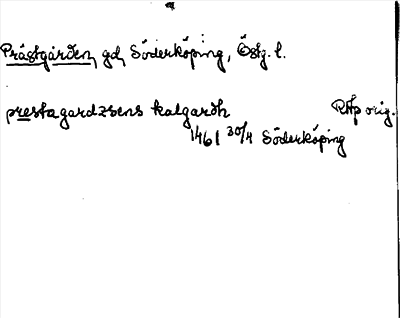 Prästgården, gd, Söderköping, Östg. l.
prestagardzsens kalgardh RAp orig.
1461 30/4 Söderköping